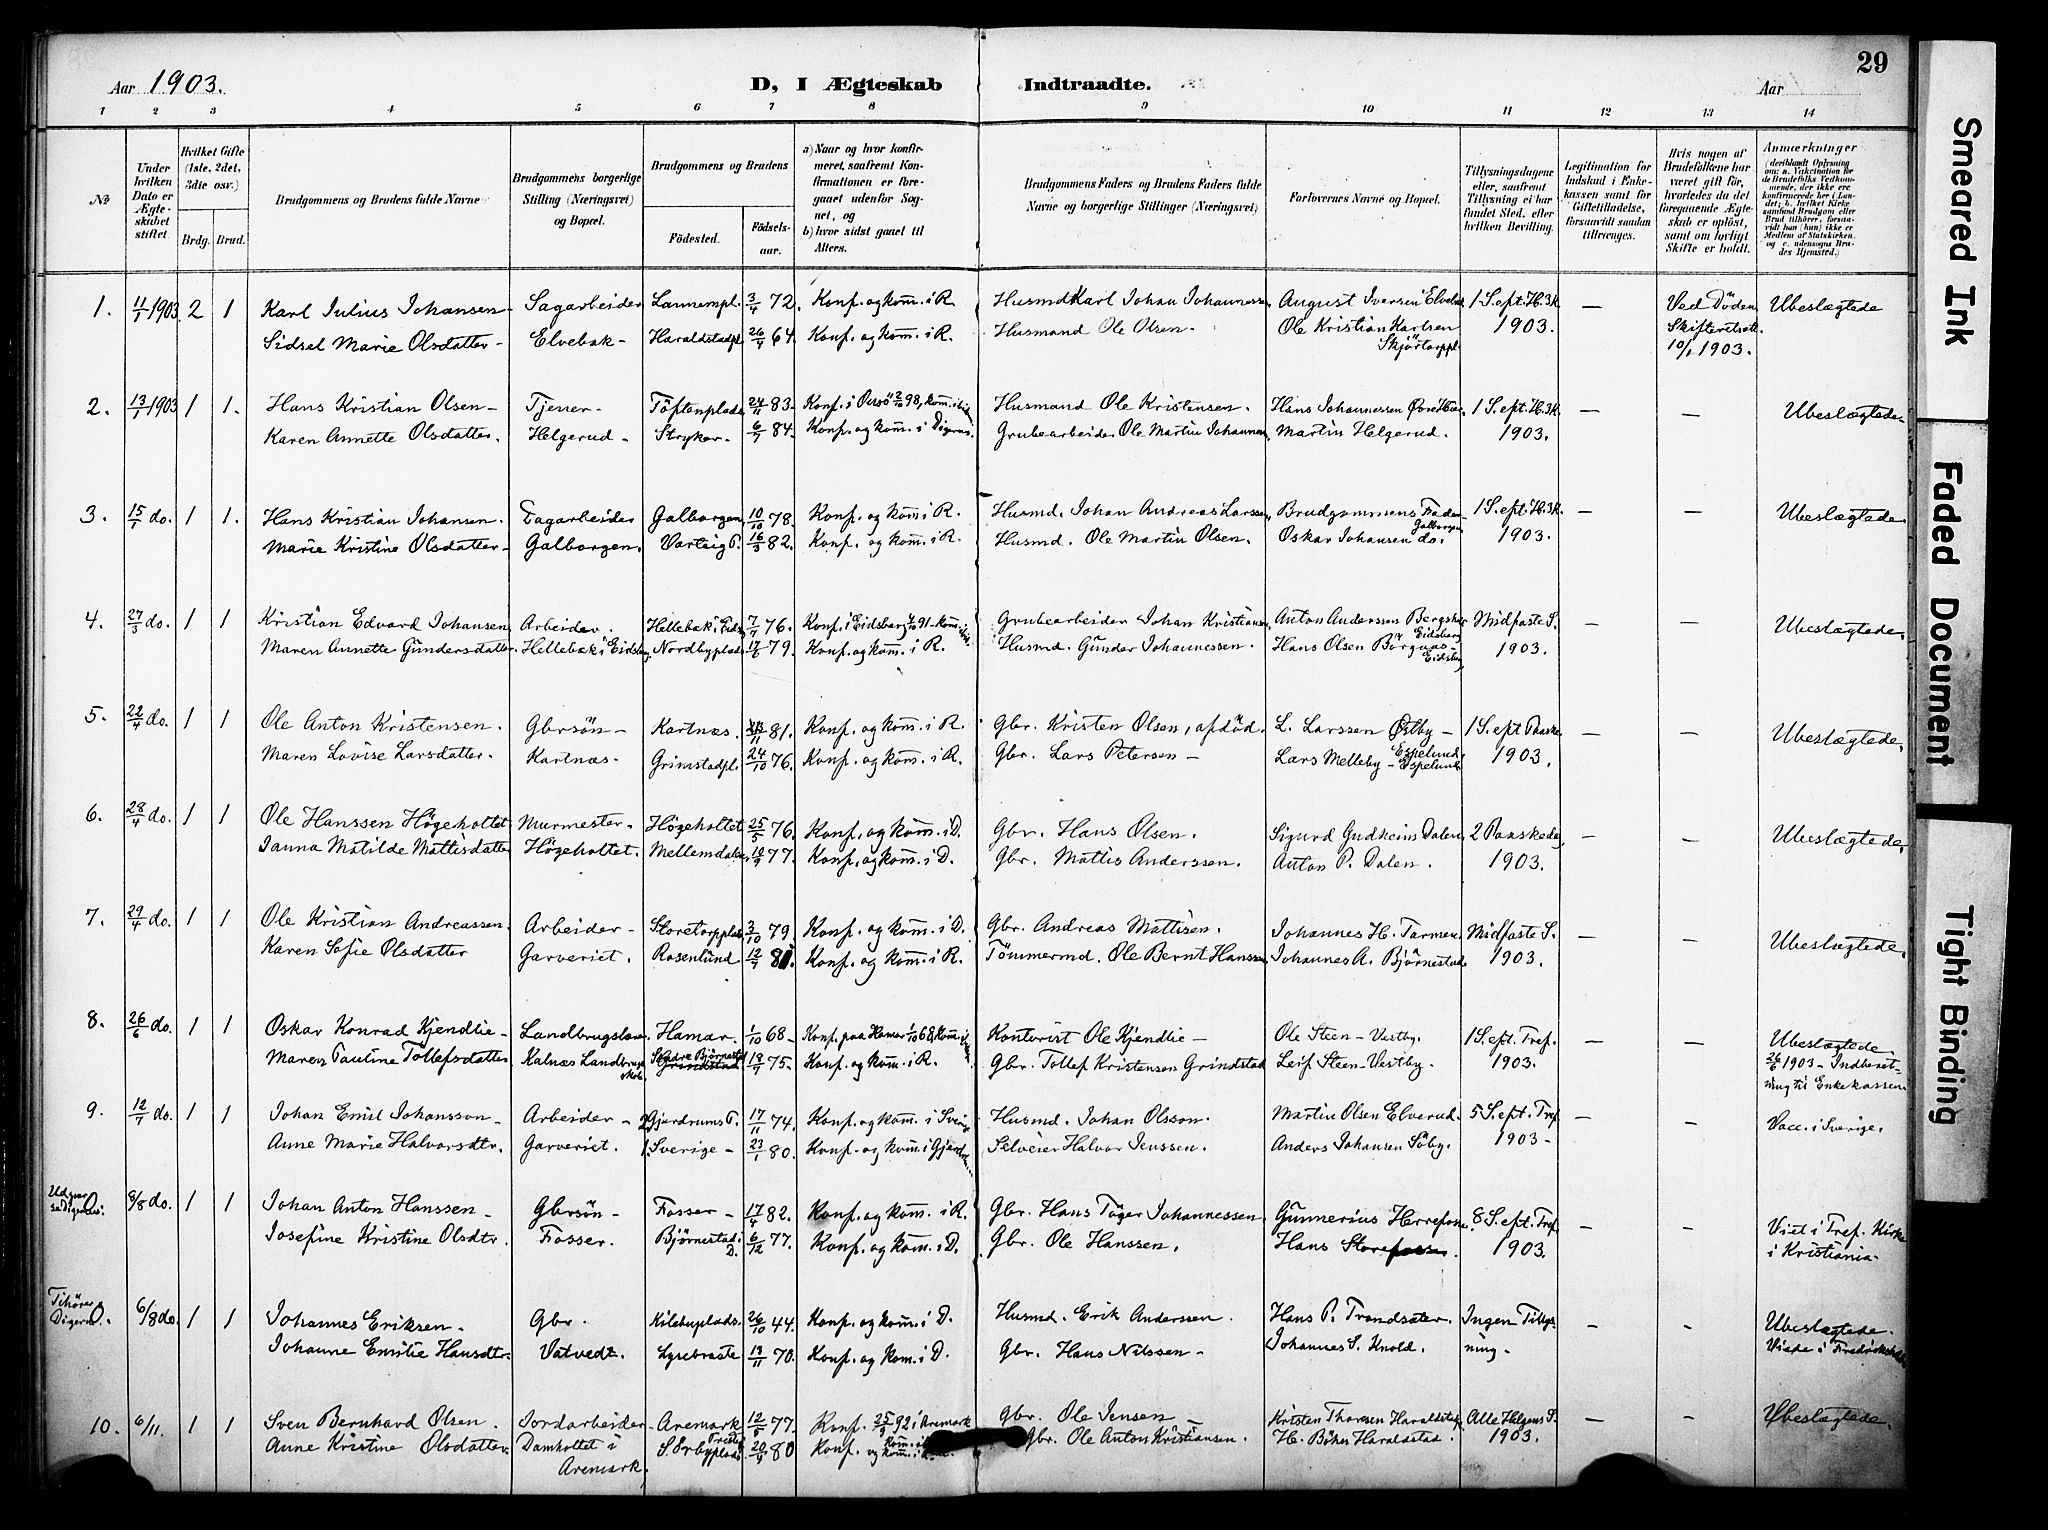 29
Aar 1903. D, I Ægteskab Indtraadte. Aar
1 2 3 4 5 6 7 8 9 10 11 12 13 14
№
Under hvilken Dato er Ægteskabet stiftet.
Hvilket Gifte (1ste, 2det, 3die osv.)
Brdg. Brud.
Brudgommens og Brudens fulde Navne
Brudgommens borgerlige Stilling (Næringsvei) og Bopæl.
Brudgommens og Brudens
Födested. Födselsaar.
a) Naar og hvor konfirmeret, saafremt Konfirmationen er foregaaet udenfor Sognet, og
b) hvor sidst gaaet til Alters.
Brudgommens Faders og Brudens Faders fulde Navne og borgerlige Stillinger (Næringsvei)
Forlovernes Navne og Bopæl.
Tillysningsdagene eller, saafremt Tillysning ei har fundet Sted, efter hvilken Bevilling.
Legitimation for Indskud i Enkekassen samt for Giftetilladelse, forsaavidt saadan tiltrænges.
Hvis nogen af Brudefolkene har været gift för, hvorledes da det foregaaende Ægteskab er oplöst, samt om lovligt Skifte er holdt.
Anmærkninger (deriblandt Oplysning om: a. Vakcination for de Brudefolks Vedkommende, der ikke ere konfirmerede her i Landet; b. hvilket Kirkesamfund Brudgom eller Brud tilhörer, forsaavidt han (hun) ikke er Medlem af Statskirken, og c. udensogns Brudes Hjemsted.
1. 11/1 1903. 2 1 Karl Julius Johansen - Sagarbeider Lannempl. 3/4 72. Konf. og kom. i R. Husmd Karl Johan Johannessen August Iversen Elvebak 1 S. ept. H. 3K. — Ved Döden Ubeslægtede
Sidsel Marie Olsdatter - Elvebak - Haraldstadpl. 26/4 64. Konf. og kom. i R. Husmand Ole Olsen - Ole Kristian Karlsen Skjörtorppl. 1903. Skifteretsatt. 10/1 1903.
2. 13/1 1903 1 1. Hans Kristian Olsen - Tjener - Töftenplads 24/11 83 - Konf. i Onsö 2/10 98, kom. Husmand Ole Kristensen. Hans Johannessen 1 S. ept. H. 3K. — — Ubeslægtede
Karen Annette Olsdatter. Helgerud - Stryker - 6/7 84. Konf. og kom. i Digernes. Grubearbeider Ole Martin Johannesen, Martin Helgerud. 1903.
3. 15/1 do. 1 1. Hans Kristian Johansen. Dagarbeider Galborgen, 10/10 78. Konf. og kom. i R. Husmd. Johan Andreas Larssen, Brudgommens Fader Galborgen 1 S. ept. H. 3K. — — Ubeslægtede.
Marie Kristine Olsdatter - Galborgen. Varteig P. 16/3 82. Konf. og kom. i R. Husmd. Ole Martin Olsen. Oskar Johansen do. 1903.
4. 27/3 do. 1 1 Kristian Edvard Johansen, Arbeider. Hellebæk i Eids. 7/7 76. Konf. i Eidsberg 4/10 91 - kom. Grubearbeider Johan Kristiansen, Anton Anderssen Eidsberg Midfaste S. — — Ubeslægtede.
Maren Annette Gundersdatter. Hellebæk i Eidsbg. Nordbyplads 17/6 79. Konf. og kom. i R. Husmd. Gunder Johannessen. Hans Olsen Eidsbg 1903.
5. 22/4 do. 1 1 Ole Anton Kristensen. Gbrsön - Kartnæs. 81. Konf. og kom. i R. Gbr. Kristen Olsen, afdöd. L. Larssen Östby - 1 S. ept Paaske — — Ubeslægtede.
Maren Lovise Larsdatter. Kartnæs. Grimstadpl. 24/10 76. Konf. og kom. i R. Gbr. Lars Petersen - Lars Melleby - Espelund 1903.
6. 28/4 do. 1 1 Ole Hanssen Högeholtet, Murmester - Högeholtet 25/5 76. Konf. og kom. i D. Gbr. Hans Olsen. Sigurd Gudheim Dalen, 2 Paaskedag — — Ubeslægtede,
Janna Matilde Mattisdatter Högeholtet. Mellemdalen 10/9 77. Konf. og kom. i D. Gbr. Mattis Anderssen. Anton P. Dalen. 1903.
7. 29/4 do. 1 1 Ole Kristian Andreassen. Arbeider - Storetorpplads 3/10 79. Konf. og kom. i D. Gbr. Andreas Mattisen. Johannes H. Tarmen. Midfaste S. — — Ubeslægtede.
Karen Sofie Olsdatter Garveriet. Rosenlund 12/7 Konf. og kom. i R. Tömmermd. Ole Bernt Hanssen, Johannes A. Björnestad 1903.
8. 26/6 do. 1 1 Oskar Konrad Kjendlie - Landbrugslærer Hamar. 1/10 68 - Konf. paa Hamar Kontorist Ole Kjendlie - Ole Steen - Vestby. 1 S. ept. Tref. — — Ubeslægtede
Maren Pauline Tollefsdatter Kalnæs Landbrugsskole Söndre Björnestad 75 - Konf. og kom. i R. Gbr. Tollef Kristensen Grindstad Leif Steen - Vestby. 1903. 26/6 1903 - Indberetning til Enkekassen
9. 12/7 do. 1 1 Johan Emil Johansson - Arbeider - 2. Gjerdrums P. 17/11 74. Konf. og kom. i Sverige Husmd. Johan Olsson. Martin Olsen Elverud. 5 S. ept. Tref. — — Vacc. i Sverige.
Anne Marie Halvorsdtr. Garveriet. 1. Sverige - 23/1 80. Konf. og kom. i Gjerdrum Selveier Halvor Jenssen. Anders Johansen Söby. 1903 -
0. 8/8 do. 1 1 Johan Anton Hanssen - Gbrsön - Fosser - 17/4 82. Konf. og kom. i R. Gbr. Hans Töger Johannessen, Gunnerius Herrefosser. 8 S. ept. Tref. — — Viet i Tref. Kirke
Josefine Kristine Olsdtr. Fosser. Björnestad D. 6/12 77. Konf. og kom. i D. Gbr. Ole Hanssen. Hans Storefosser. 1903. i Kristiania.
Tihörer Digernes 0. 6/8 do. 1 1 Johannes Eriksen. Gbr. Kilebuplads. 26/10 44. Konf. og kom. i D. Husmd. Erik Anderssen. Hans P. Trandsæter. Ingen Tillys- — — Ubeslægtede.
Johanne Emilie Hansdtr. Vatvedt. Lysebraate 70. Konf. og kom. i D. Gbr. Hans Nilssen - Johannes S. Knold. ning - Viede i Fredrikshald
10. 6/11. 1 1 Sven Bernhard Olsen. Jordarbeider - Aremark 12/5 77. Konf. 25/9 92 i Aremark Gbr. Ole Jensen Kristen Thoresen Haraldstad. Alle Helgens S. — — Ubeslægtede
Anne Kristine Olsdatter. Damholtet i Aremark. Sörbyplads 20/4 80 Konf. og kom. i R. Gbr. Ole Anton Kristiansen. H. Böher Haraldstad. 1903.
Smeared Ink
Faded Document
Tight Binding